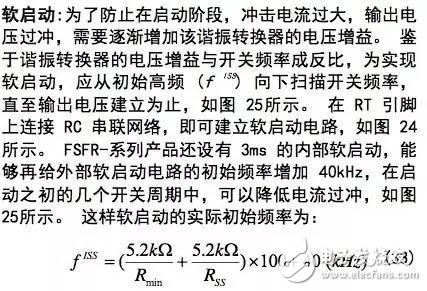 软启动:为了防止在启动阶段，冲击电流过大，输出电
压过冲，需要逐渐增加该谐振转换器的电压增益。 鉴
于谐振转换器的电压增益与开关频率成反比，为实现
软启动，应从初始高频 (f ISS) 向下扫描开关频率，
直至输出电压建立为止，如图 25所示。 在 RT 引脚
上连接 RC 串联网络，即可建立软启动电路，如图 24
所示。 FSFR-系列产品还设有 3ms 的内部软启动，能
够再给外部软启动电路的初始频率增加 40kHz，在启
动之初的几个开关周期中，可以降低电流过冲，如图
25所示。 这样软启动的实际初始频率为:
f ISS = (5.2kΩ/Rmin + 5.2kΩ/RSS) × 100 40 (kHz) (33)
电子发烧友